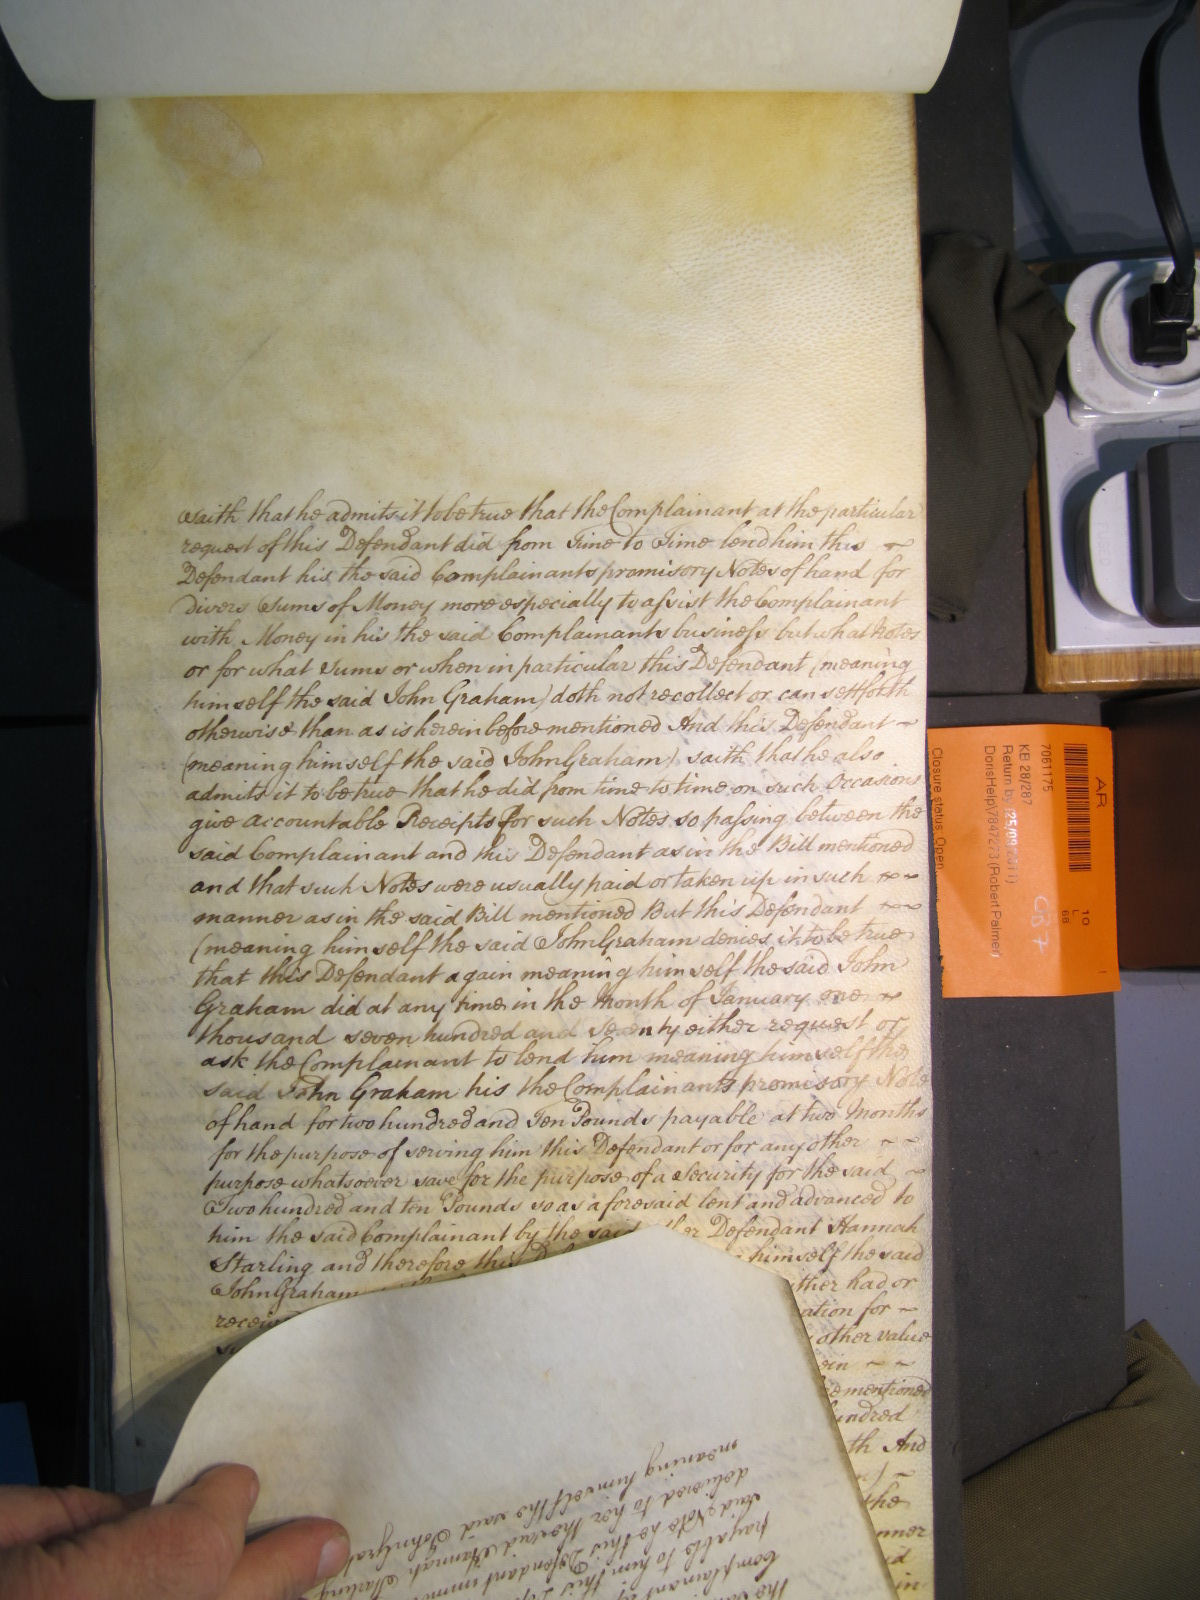 saith that he admits it to be true that the Complainant at the particular
request of this Defendant did from Time to Time lend him this
Defendant his the said Complainants promisory Notes of hand for
divers Sums of Money more especially to assist the Complainant
with Money in his the said Complainants business but what Notes
or for what Sums or when in particular this Defendant (meaning
himself the said John Graham) doth not recollect or can sett forth
otherwise than as is herein before mentioned And this Defendant
(meaning himself the said John Graham) saith that he also
admits it to be true that he did from time to time on such Occasions
give accountable Receipts for such Notes so passing between the
said Complainant and this Defendant as in the Bill mentioned
and that such Notes were usually paid or taken up in such
manner as in the said Bill mentioned But this Defendant
(meaning himself the said John Graham denies it to be true
that this Defendant again meaning himself the said John
Graham did at any time in the Month of January one
thousand seven hundred and seventy either request or
ask the Complainant to lend him meaning himself the
said John Graham his the Complainants promisory Note
of hand for two hundred and Ten Pounds payable at two Months
for the purpose of serving him this Defendant or for any other
purpose whatsoever save for the purpose of a Security for the said
Two hundred and ten Pounds so as aforesaid lent and advanced to
him the said Complainant by the said other Defendant Hannah
Starling and therefore this himself the said
John Graham either had or
for
other value
mentioned
hundred
And
the
in
meaning himself the said John
delivered to her the said Hannah Starling
said Note he this Defendant
payable to him this
Complainant
AR
10
L
68
7061175
KB 28/287
Return by 25/09
DorisHelp\7847273 (Robert Palmer)
Closure status: Open